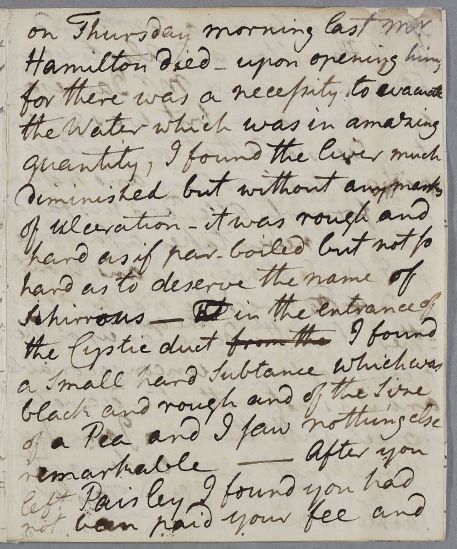 on Thursday morning last Mr
Hamilton died - upon opening him,
for there was a necessity to evacuate
the Water which was in amazing
quantity, I found the liver much
diminished but without any marks
of ulceration - it was rough and
hard as if par-boiled but not so
hard as to deserve the name of
Schirrous — in the entrance of
the Cystic duct from the I found
a small hard Subtance which was
black and rough and of the Sise
of a Pea and I saw nothing else
remarkable — After you
left Paisley I found you had
not been paid your fee and